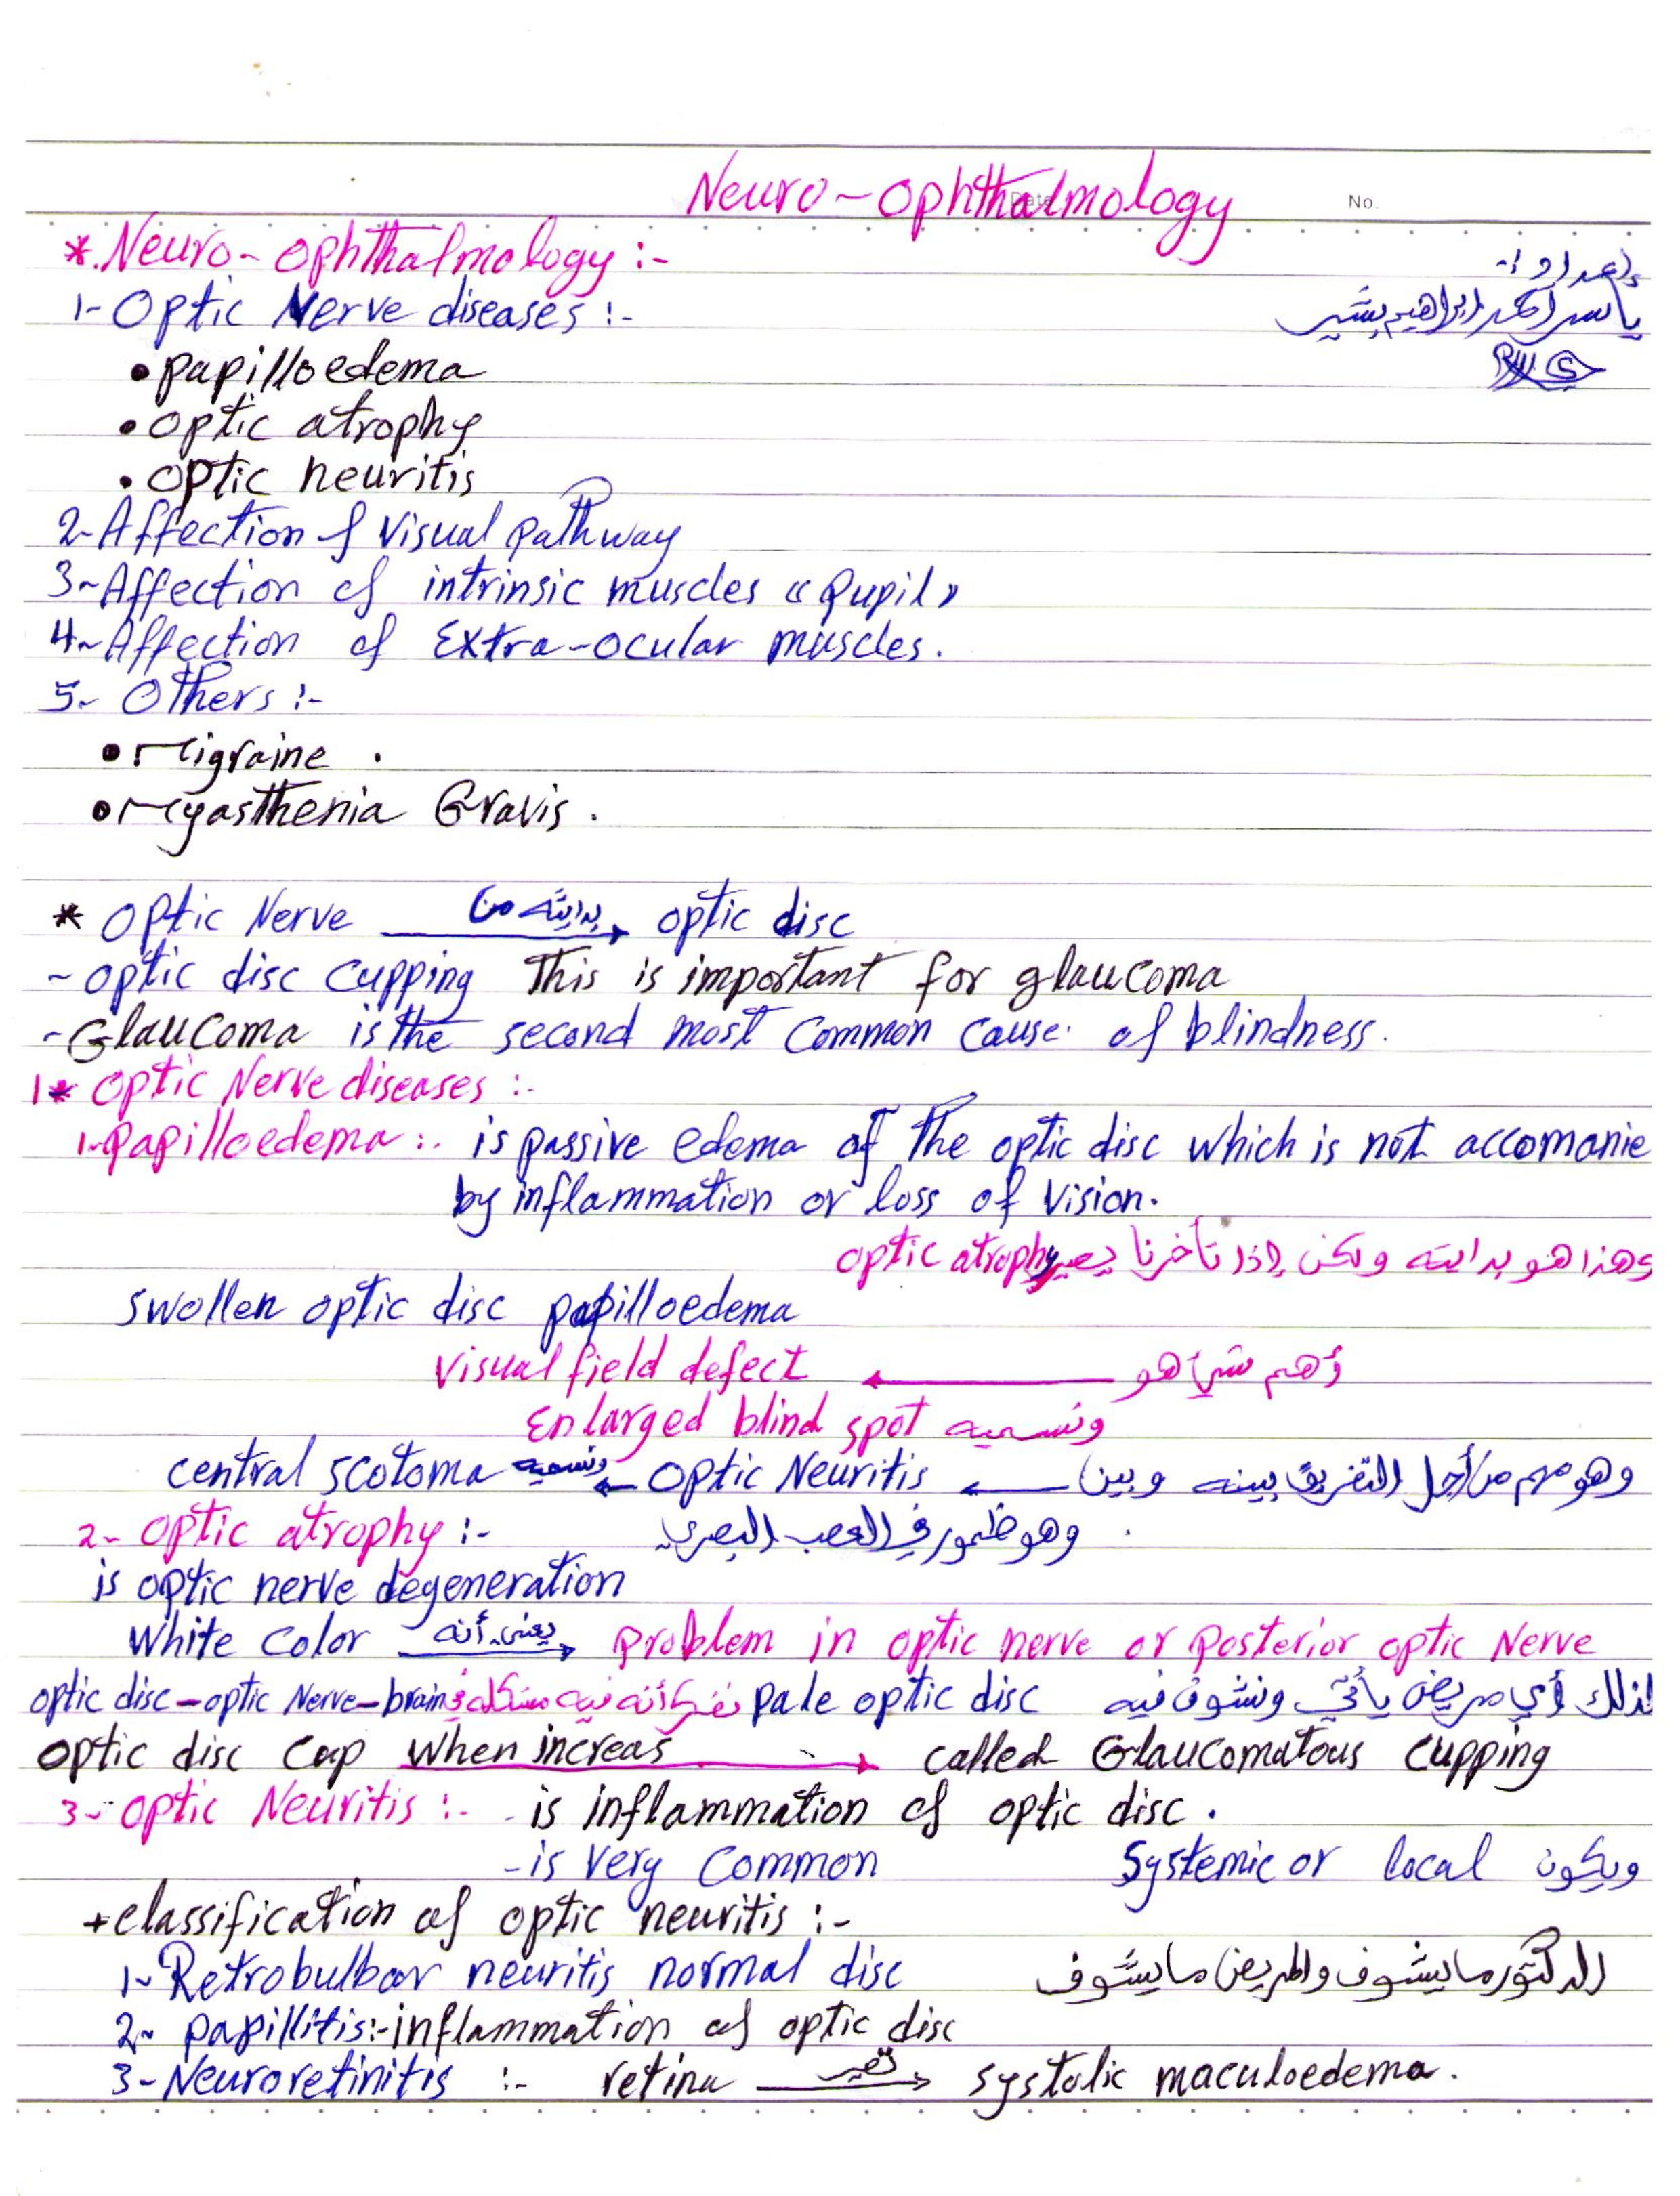 Neuro-Ophthalmology
Date
No.
* Neuro-Ophthalmology :-
إعداد :-
1- Optic Nerve diseases :-
ياسر أحمد إبراهيم بشير
• papilloedema
• optic atrophy
• optic neuritis
2- Affection of Visual pathway
3- Affection of intrinsic muscles «Pupil»
4- Affection of Extra-ocular muscles.
5- Others :-
• Migraine .
• Myasthenia Gravis .
* Optic Nerve بدايته من → optic disc
- optic disc cupping This is important for glaucoma
- Glaucoma is the second most common cause of blindness.
1* Optic Nerve diseases :-
1- papilloedema :- is passive edema of The optic disc which is not accomanie
by inflammation or loss of vision.
وهذا هو بدايته ولكن إذا تأخرنا يصير optic atrophy
swollen optic disc papilloedema
أهم شيء هو ← visual field defect
ونسميه Enlarged blind spot
وهو مهم من أجل التفريق بينه وبين ← Optic Neuritis ← ونسميه central scotoma
2- optic atrophy :- وهو ضمور في العصب البصري
is optic nerve degeneration
white color يعني أنه → problem in optic nerve or posterior optic Nerve
لذلك أي مريض يأتي ونشوف فيه pale optic disc نفكر أنه فيه مشكلة في optic disc – optic Nerve – brain
optic disc cup when increas → called Glaucomatous cupping
3- optic Neuritis :- - is inflammation of optic disc .
- is very common ويكون Systemic or local
+ classification of optic neuritis :-
1- Retrobulbar neuritis normal disc الدكتور ما يشوف والمريض ما يشوف
2- papillitis :- inflammation of optic disc
3- Neuroretinitis :- retina تصير → systolic maculoedema .